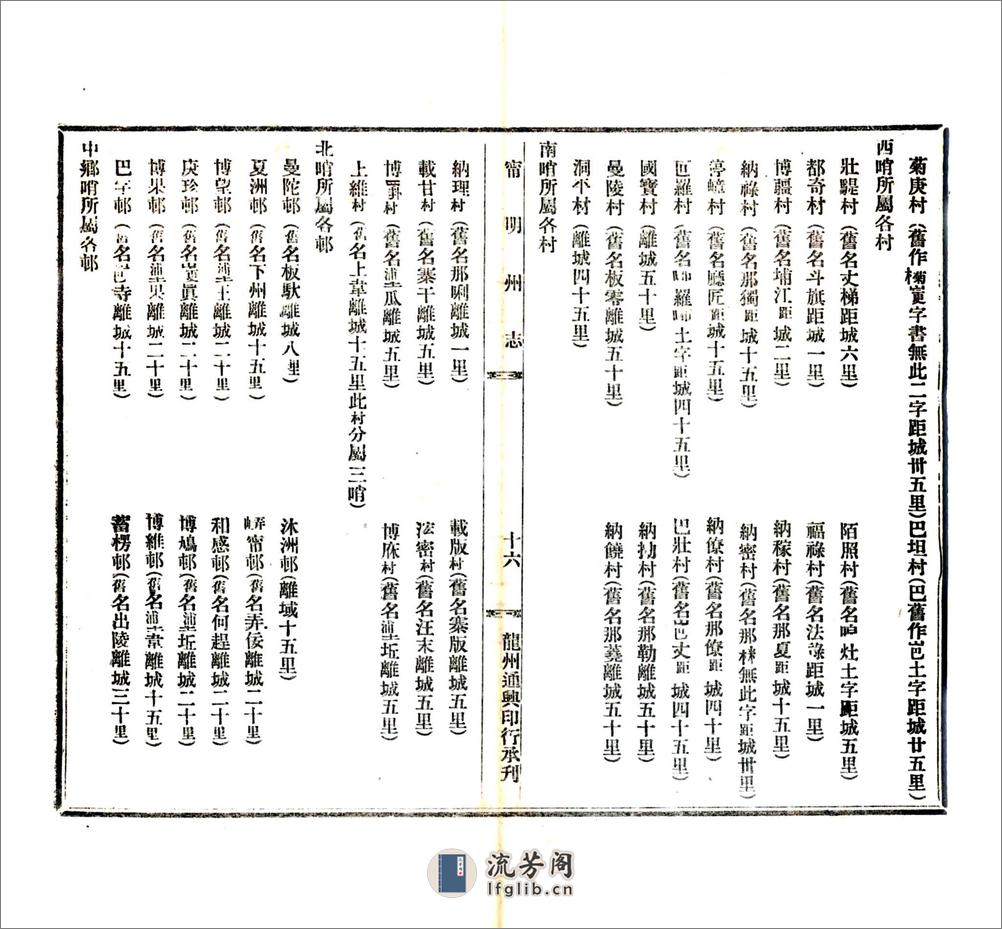 菊庚村（舊作椈㝧字書無此二字距城卅五里）巴坦村（巴舊作岜土字距城廿五里）
西哨所屬各村
壯騠村（舊名丈梯距城六里） 陌照村（舊名 灶土字距城五里）
都奇村（舊名斗旗距城一里） 福祿村（舊名法祿距城一里）
博疆村（舊名埔江距城二里） 納稼村（舊名那夏距城十五里）
納祿村（舊名那獨距城十五里） 納密村（舊名那 無此字距城卅里）
亭嶂村（舊名廳匠距城十五里） 納僚村（舊名那僚距城四十里）
叵羅村（舊名 羅 土字距城四十五里） 巴壯村（舊名岜丈距城四十五里）
國寶村（離城五十里） 納勑村（舊名那勒離城五十里）
曼陵村（舊名板零離城五十里） 納饒村（舊名那蕘離城五十里）
洞平材（離城四十五里）
南哨所屬各村
甯明州志
十六
龍州通興印行承刊
納理村（舊名那唎離城一里） 載版村（舊名寨版離城五里）
載甘村（舊名寨干離城五里） 浤密村（舊名汪末離城五里）
博 村（舊名 瓜離城五里） 博庥村（舊名 坵離城五里）
上維村（舊名上韋離城十五里此村分屬三哨）
北哨所屬各邨
曼陀邨（舊名板馱離城八里） 沐洲邨（離域十五里）
夏洲邨（舊名下州離城十五里） 甯邨（舊名弄佞離城二十里）
博望邨（舊名 王離城二十里） 和感邨（舊名何趕離城二十里）
庚珍邨（舊名 眞離城二十里） 博鳩邨（舊名 坵離城二十里）
博果邨（舊名 果離城二十里） 博維邨（舊名 韋離城十五里）
巴字邨（舊名岜寺離城十五里） 蓄楞邨（舊名出陵離城三十里）
中鄉哨所屬各邨
流芳阁
lfglib.cn